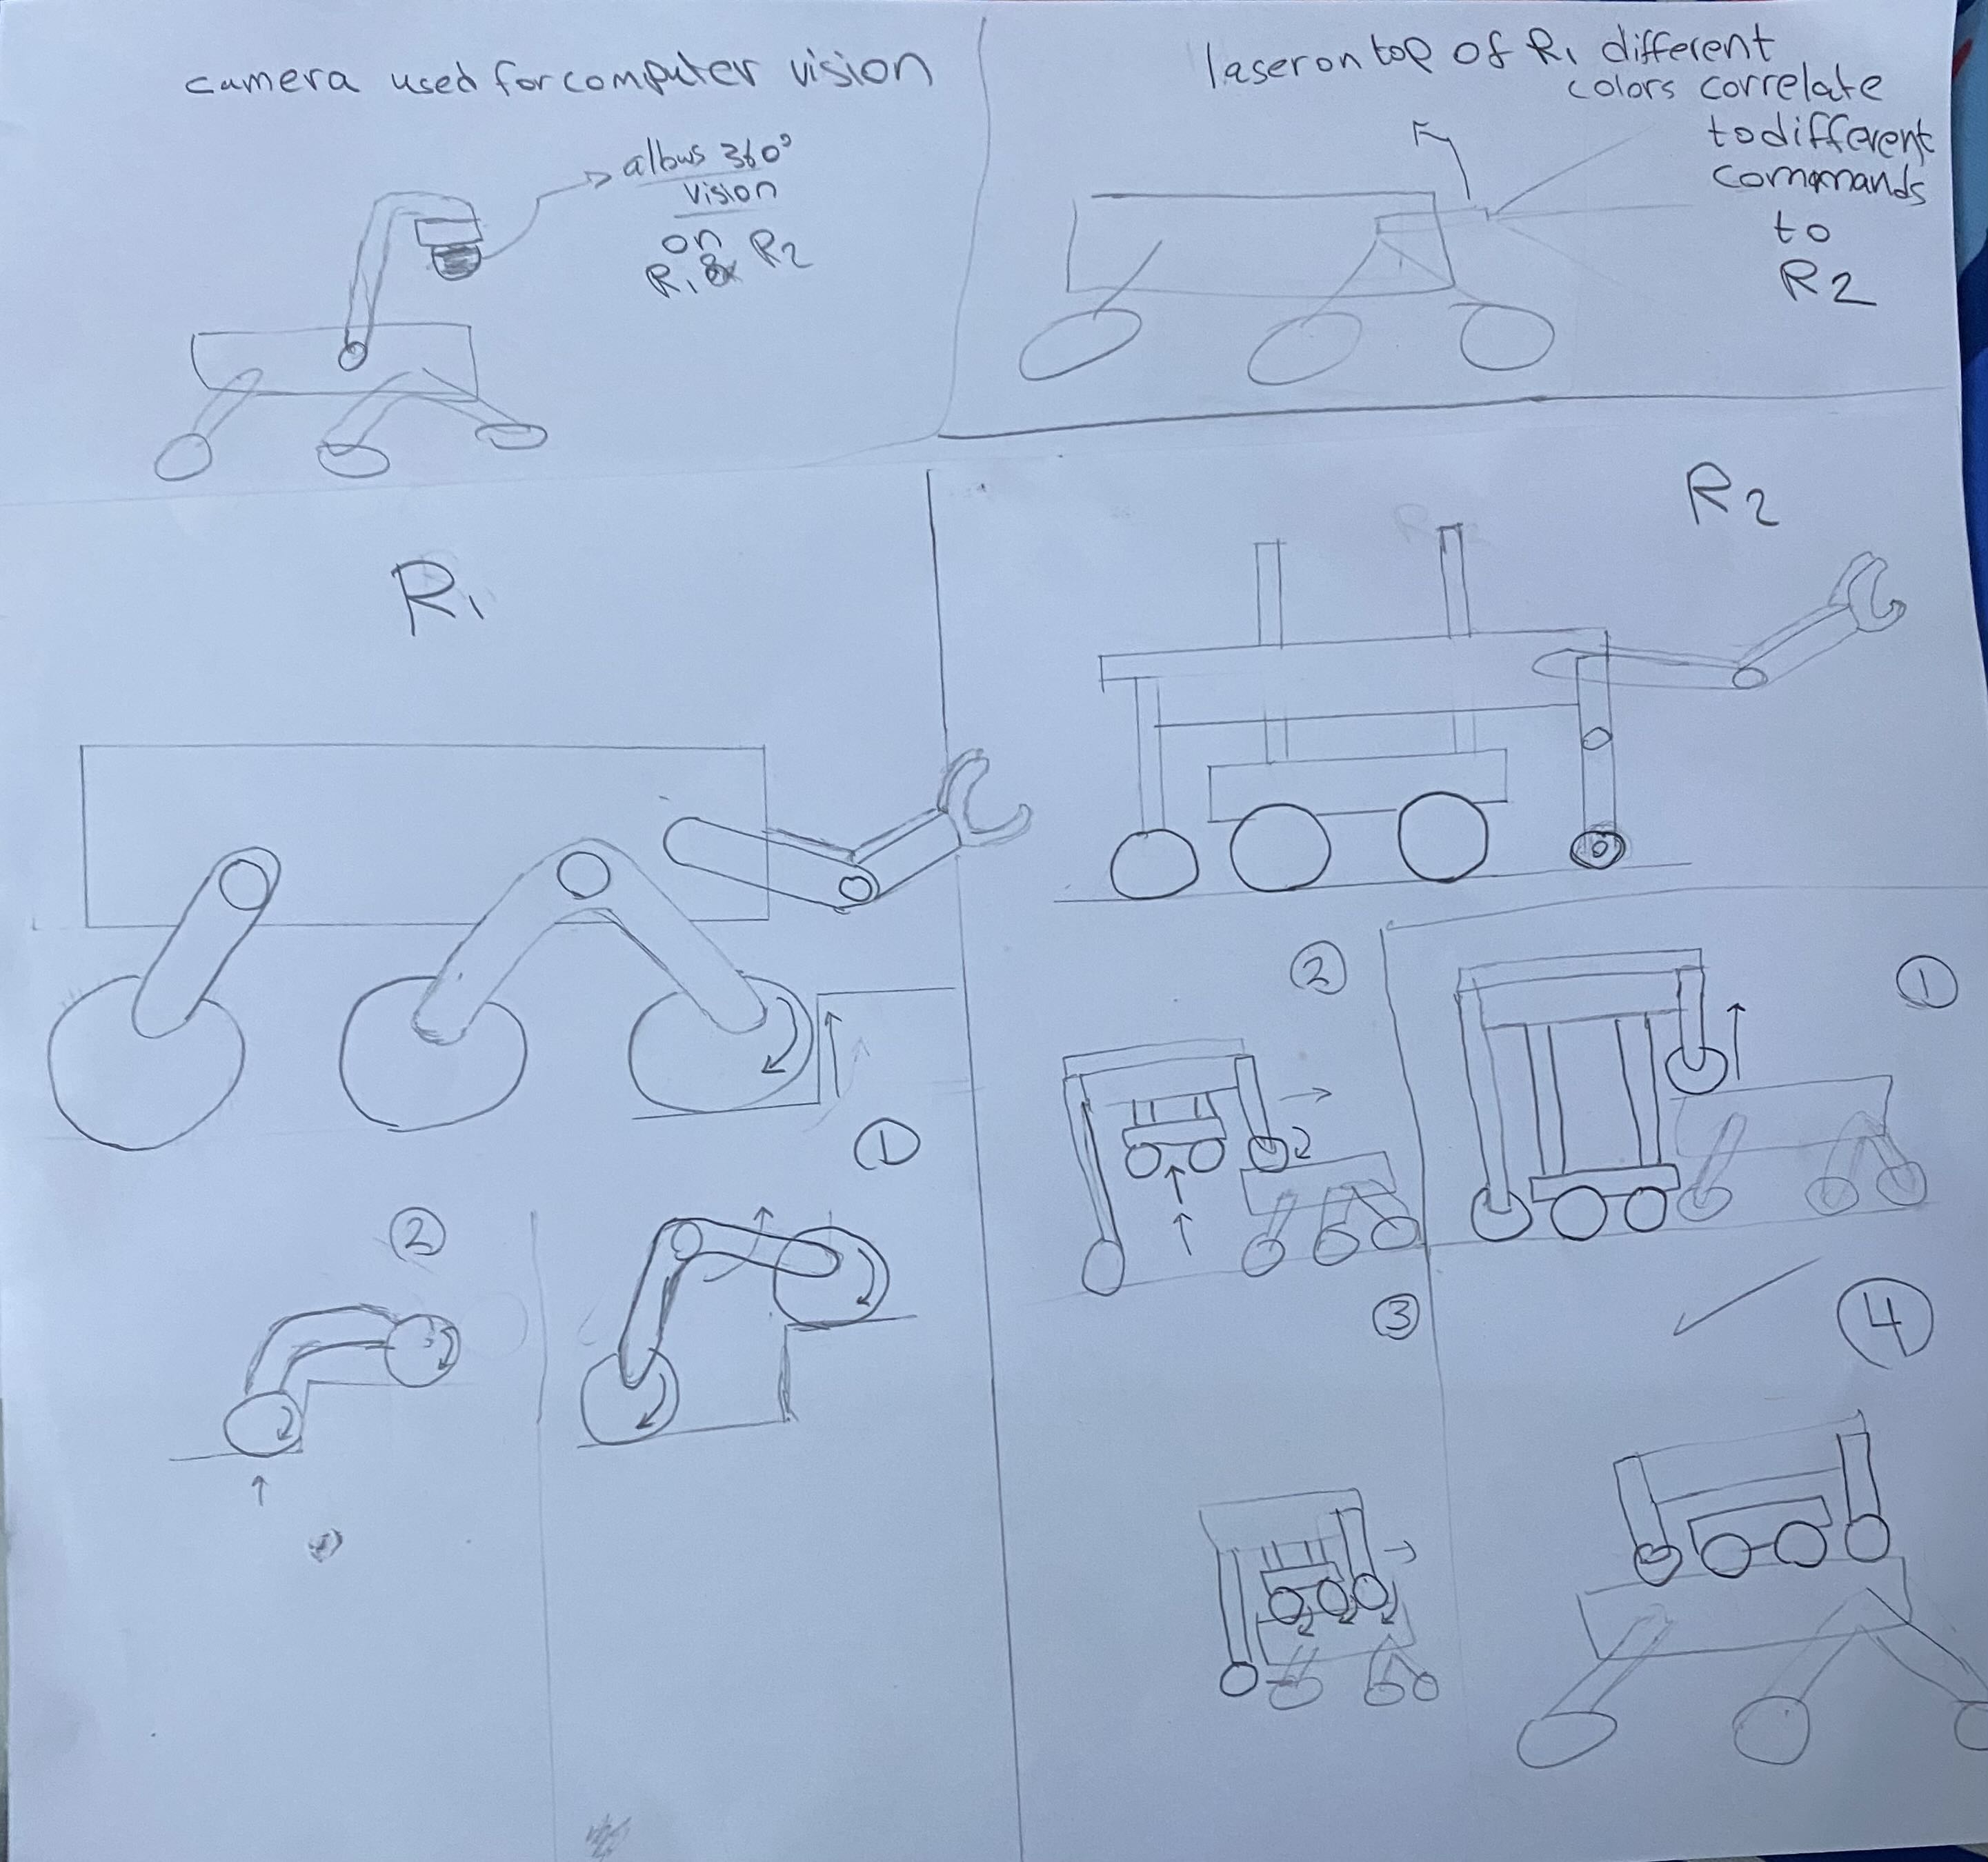 camera used for computer vision
albws 360°
vision
on
R1 & R2
laser on top of R1 different
colors correlate
to different
commands
to
R2
R1
R2
①
②
①
②
③
④